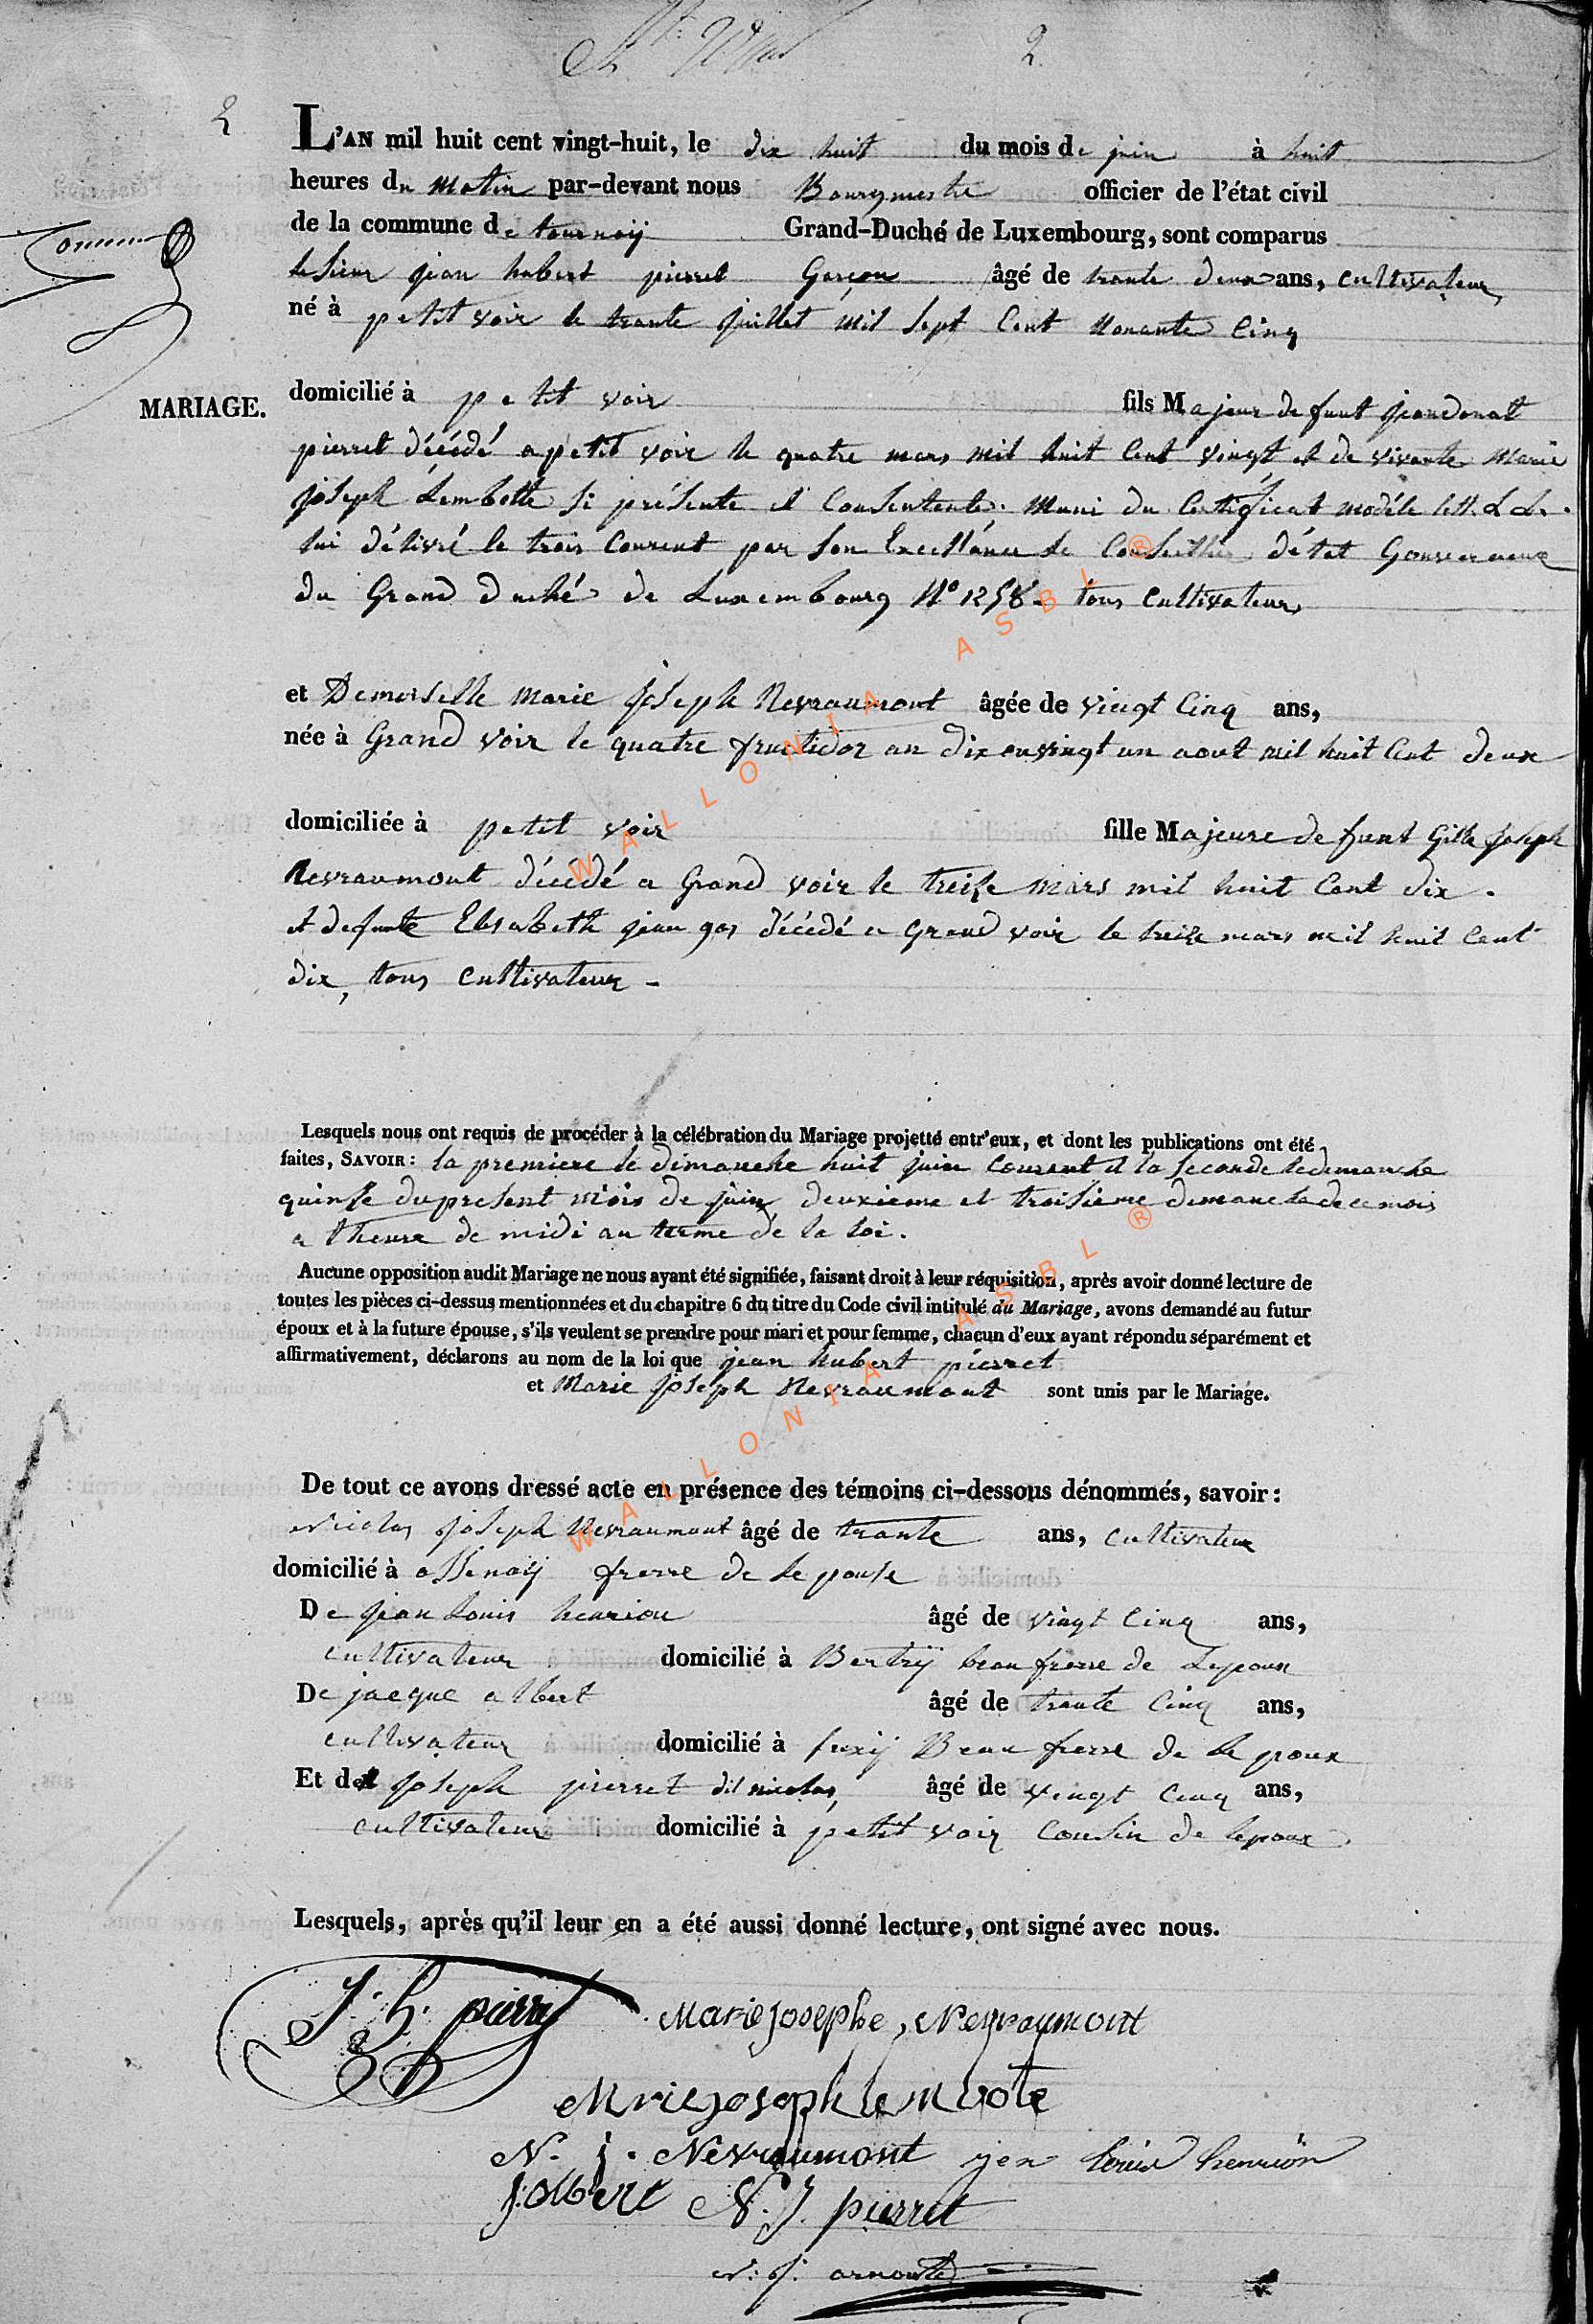 2
2
L'AN mil huit cent vingt-huit, le dix huit du mois de juin à huit
heures du Matin par-devant nous Bourgmestre officier de l'état civil
de la commune de tournaÿ Grand-Duché de Luxembourg, sont comparus
le Sieur jean hubert pierret Garçon âgé de trante deux ans, cultivateur
né à petit voir le trante juillet mil sept Cent Nonante Cinq
MARIAGE.
domicilié à petit voir fils Majeur defunt jeandonat
pierret décédé a petit voir le quatre mars mil huit Cent vingt et de vivante Marie
joseph Lembotte si présente et Consentente. Muni du Certificat modéle lett. LL.
lui délivré le trois Courent par son Excellance le Conseiller détat Gouverneur
du Grand Duché de Luxembourg N° 1258. tous Cultivateurs
et Demoiselle Marie joseph Nevraumont âgée de vingt Cinq ans,
née à Grand voir le quatre fructidor an dix ou vingt un aout mil huit Cent deux
domiciliée à petit voir fille Majeure defunt Gille joseph
Nevraumont décédé a Grand voir le treize mars mil huit Cent dix.
et defunte Elisabeth décédé a Grand voir le treize mars mil huit Cent
dix, tous Cultivateur -
Lesquels nous ont requis de procéder à la célébration du Mariage projetté entr'eux, et dont les publications ont été
faites, SAVOIR: la premiere le dimanche huit juin Courent et la seconde ledimanche
quinse dupresent mois de juin, deuxieme et troisieme dimanche de ce mois
a lheure de midi au terme de la loi.
Aucune opposition audit Mariage ne nous ayant été signifiée, faisant droit à leur réquisition, après avoir donné lecture de
toutes les pièces ci-dessus mentionnées et du chapitre 6 du titre du Code civil intitulé du Mariage, avons demandé au futur
époux et à la future épouse, s'ils veulent se prendre pour mari et pour femme, chacun d'eux ayant répondu séparément et
affirmativement, déclarons au nom de la loi que jean hubert pierret
et Marie joseph Nevraumont sont unis par le Mariage.
De tout ce avons dressé acte en présence des témoins ci-dessous dénommés, savoir:
Nicolas joseph Nevraumont âgé de trante ans, cultivateur
domicilié à assenoiÿ frerre de lepouse
De jean Louis henrion âgé de vingt Cinq ans,
cultivateur domicilié à Bertriÿ beau frerre de Lepoux
De jacque albert âgé de trante Cinq ans,
cultivateur domicilié à suxÿ Beau frerre de le poux
Et de joseph pierret dit nicolas, âgé de vingt Cinq ans,
cultivateur domicilié à petit voir Cousin de lepoux
Lesquels, après qu'il leur en a été aussi donné lecture, ont signé avec nous.
J. h. pierret Marie josephe, Nevraymont
MriejosephlemBote
N. j. Nevraumont jen louis henrion
J: albert N. J. pierret
WALLONIA ASBL ®
WALLONIA ASBL ®